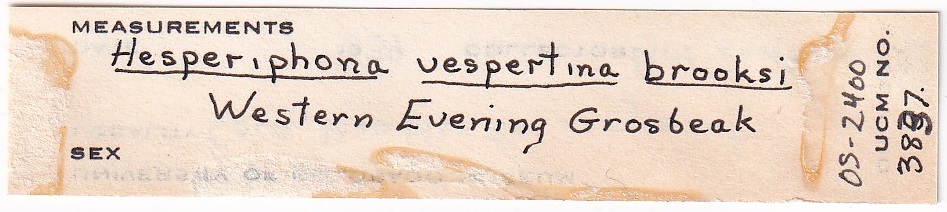 MEASUREMENTS
Hesperiphona vespertina brooksi
Western Evening Grosbeak
SEX
OS-2400
UCM NO.